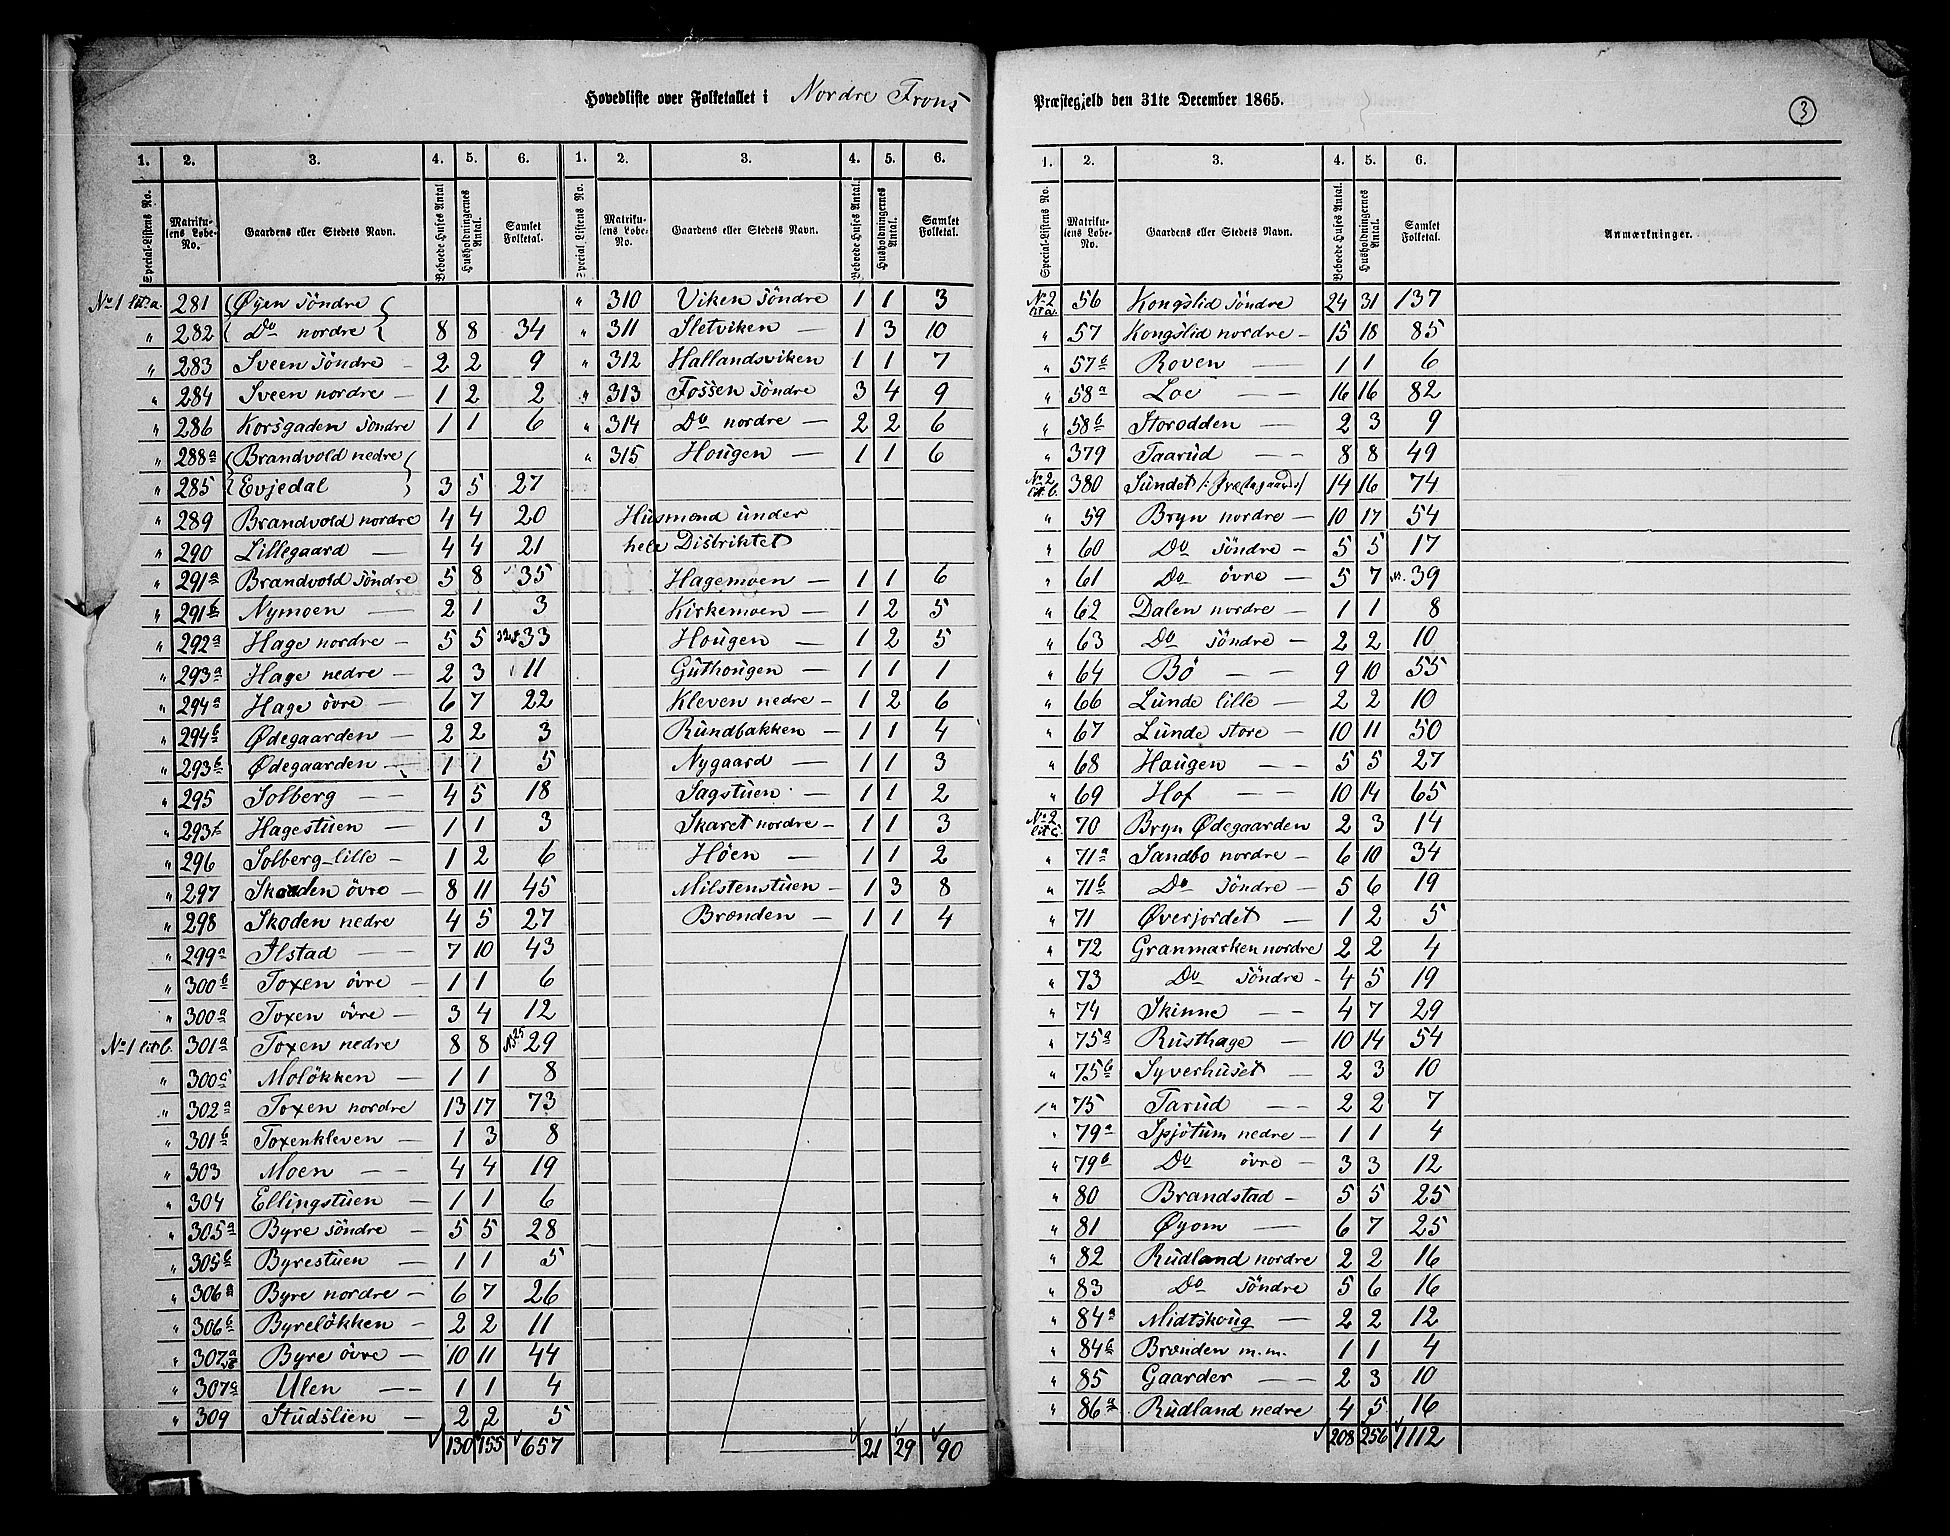 Hovedliste over Folketallet i Nordre Frons
1. 2. 3. 4. 5. 6. 1. 2. 3. 4. 5. 6.
Special-Listens No. Matrikulens Løbe-No. Gaardens eller Stedets Navn. Beboede Huses Antal Husholdningernes Antal. Samlet Folketal. Special Listens No. Matrikulens Løbe-No. Gaardens eller Stedets Navn. Beboede Huses Antal. Husholdningernes Antal. Samlet Folketal.
No 1 litr a. 281 Øyen söndre
" 282 Do nordre 8 8 34
" 283 Sveen söndre - 2 2 9
" 284 Sveen nordre - 1 2 2
" 286 Korsgaden söndre 1 1 6
" 288a Brandvold nedre
" 285 Evjedal 3 5 27
" 289 Brandvold nordre 4 4 20
" 290 Lillegaard - 4 4 21
" 291a Brandvold söndre 5 8 35
" 291b Nymoen - 2 1 3
" 292a Hage nordre - 5 5 33
" 293a Hage nedre - 2 3 11
" 294a Hage övre - 6 7 22
" 294b Ødegaarden - 2 2 3
" 293b Ødegaarden - 1 1 5
" 295 Solberg - - 4 5 18
" 293 Hagestuen - 1 1 3
" 296 Solberg lille - 1 2 6
" 297 Skoden övre - 8 11 45
" 298 Skoden nedre 4 5 27
" 299a Alstad - 7 10 43
" 300b Toxen övre - 1 1 6
" 300a Toxen övre - 3 4 12
No 1 litr b. 301a Toxen nedre 8 8 29
" 300c Molökken - 1 1 8
" 302a Toxen nordre 13 17 73
" 301b Toxenkleven - 1 3 8
" 303 Moen - - 4 4 19
" 304 Ellingstuen - 1 1 6
" 305a Byre söndre - 5 5 28
" 305b Byrestuen - 1 1 5
" 306a Byre nordre - 6 7 26
" 306b Byrelökken - 2 2 11
" 307a Byre övre - 10 11 44
" 307c Ulen - - 1 1 4
" 309 Studslien - 2 2 5
130 155 657
" 310 Viken söndre 1 1 3
" 311 Sletviken - 1 3 10
" 312 Hallandsviken 1 1 7
" 313 Fossen söndre 3 4 9
" 314 Do nordre - 2 2 6
" 315 Hougen - 1 1 6
Husmænd under
hele Distriktet
Hagemoen - 1 1 6
Kirkemoen - 1 2 5
Hougen - 1 2 5
Guthougen - 1 1 1
Kleven nedre - 1 2 6
Rundbakken - 1 1 4
Nygaard - 1 1 3
Sagstuen - 1 1 2
Skaret nordre - 1 1 3
Höen - 1 1 2
Milstenstuen - 1 3 8
Brænden - 1 1 4
21 29 90
Præstegjeld den 31te December 1865.
3
1. 2. 3. 4. 5. 6.
Special-Listens No. Matrikulens Løbe-No. Gaardens eller Stedets Navn. Beboede Huses Antal. Husholdningernes Antal. Samlet Folketal. Anmærkninger.
No 2 lit a. 56 Kongslid söndre 24 31 137
" 57 Kongslid nordre - 15 18 85
" 57b Roven - 1 1 6
" 58a Loe - - 16 16 82
" 58b Storodden - 2 3 9
" 379 Taarud - - 8 8 49
No 2 lit. b. 380 Sundet /: Præstegaard :/ 14 16 74
" 59 Bryn nordre - 10 17 54
" 60 Do söndre - 5 5 17
" 61 Do övre - 5 7 39
" 62 Dalen nordre - 1 1 8
" 63 Do söndre - 2 2 10
" 64 Bö - - 9 10 55
" 66 Lunde lille - 2 2 10
" 67 Lunde store - 10 11 50
" 68 Haugen - - 5 5 27
" 69 Hof - - 10 14 65
No 2 lit c. 70 Bryn Ødegaarden 2 3 14
" 71a Sandbo nordre - 6 10 34
" 71b Do söndre - 5 6 19
" 71 Øverjordet - 1 2 5
" 72 Granmarken nordre 2 2 4
" 73 Do söndre - 4 5 19
" 74 Skinne - 4 7 29
" 75a Rusthage - 10 14 54
" 75b Syverhuset - 2 3 10
" 75 Tarud - - 2 2 7
" 79a Spjötum nedre - 1 1 4
" 79b Do övre - 3 3 12
" 80 Brandstad - 5 5 25
" 81 Øyom - 6 7 25
" 82 Rudland nordre 2 2 16
" 83 Do söndre 5 6 16
" 84a Midtskoug - 2 2 12
" 84b Brænden m.m. 1 1 4
" 85 Gaarder - - 2 3 10
" 86a Rudland nedre 4 5 16
208 256 1112